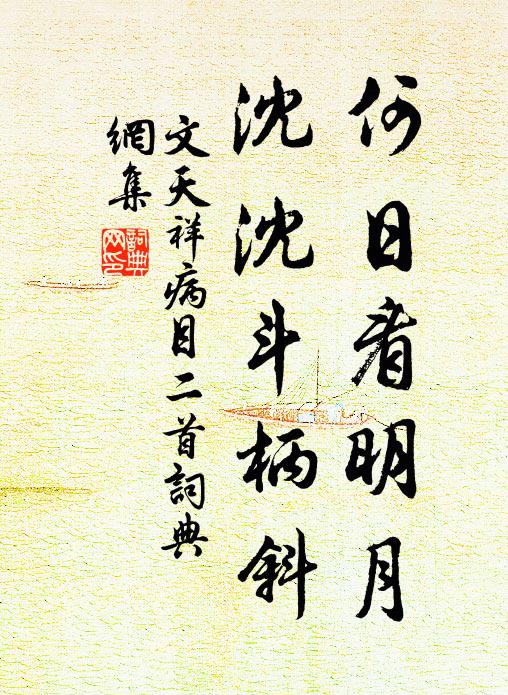 何日看明月
沈沈斗柄斜
文天祥病目二首詞典
網集
詞典
网印